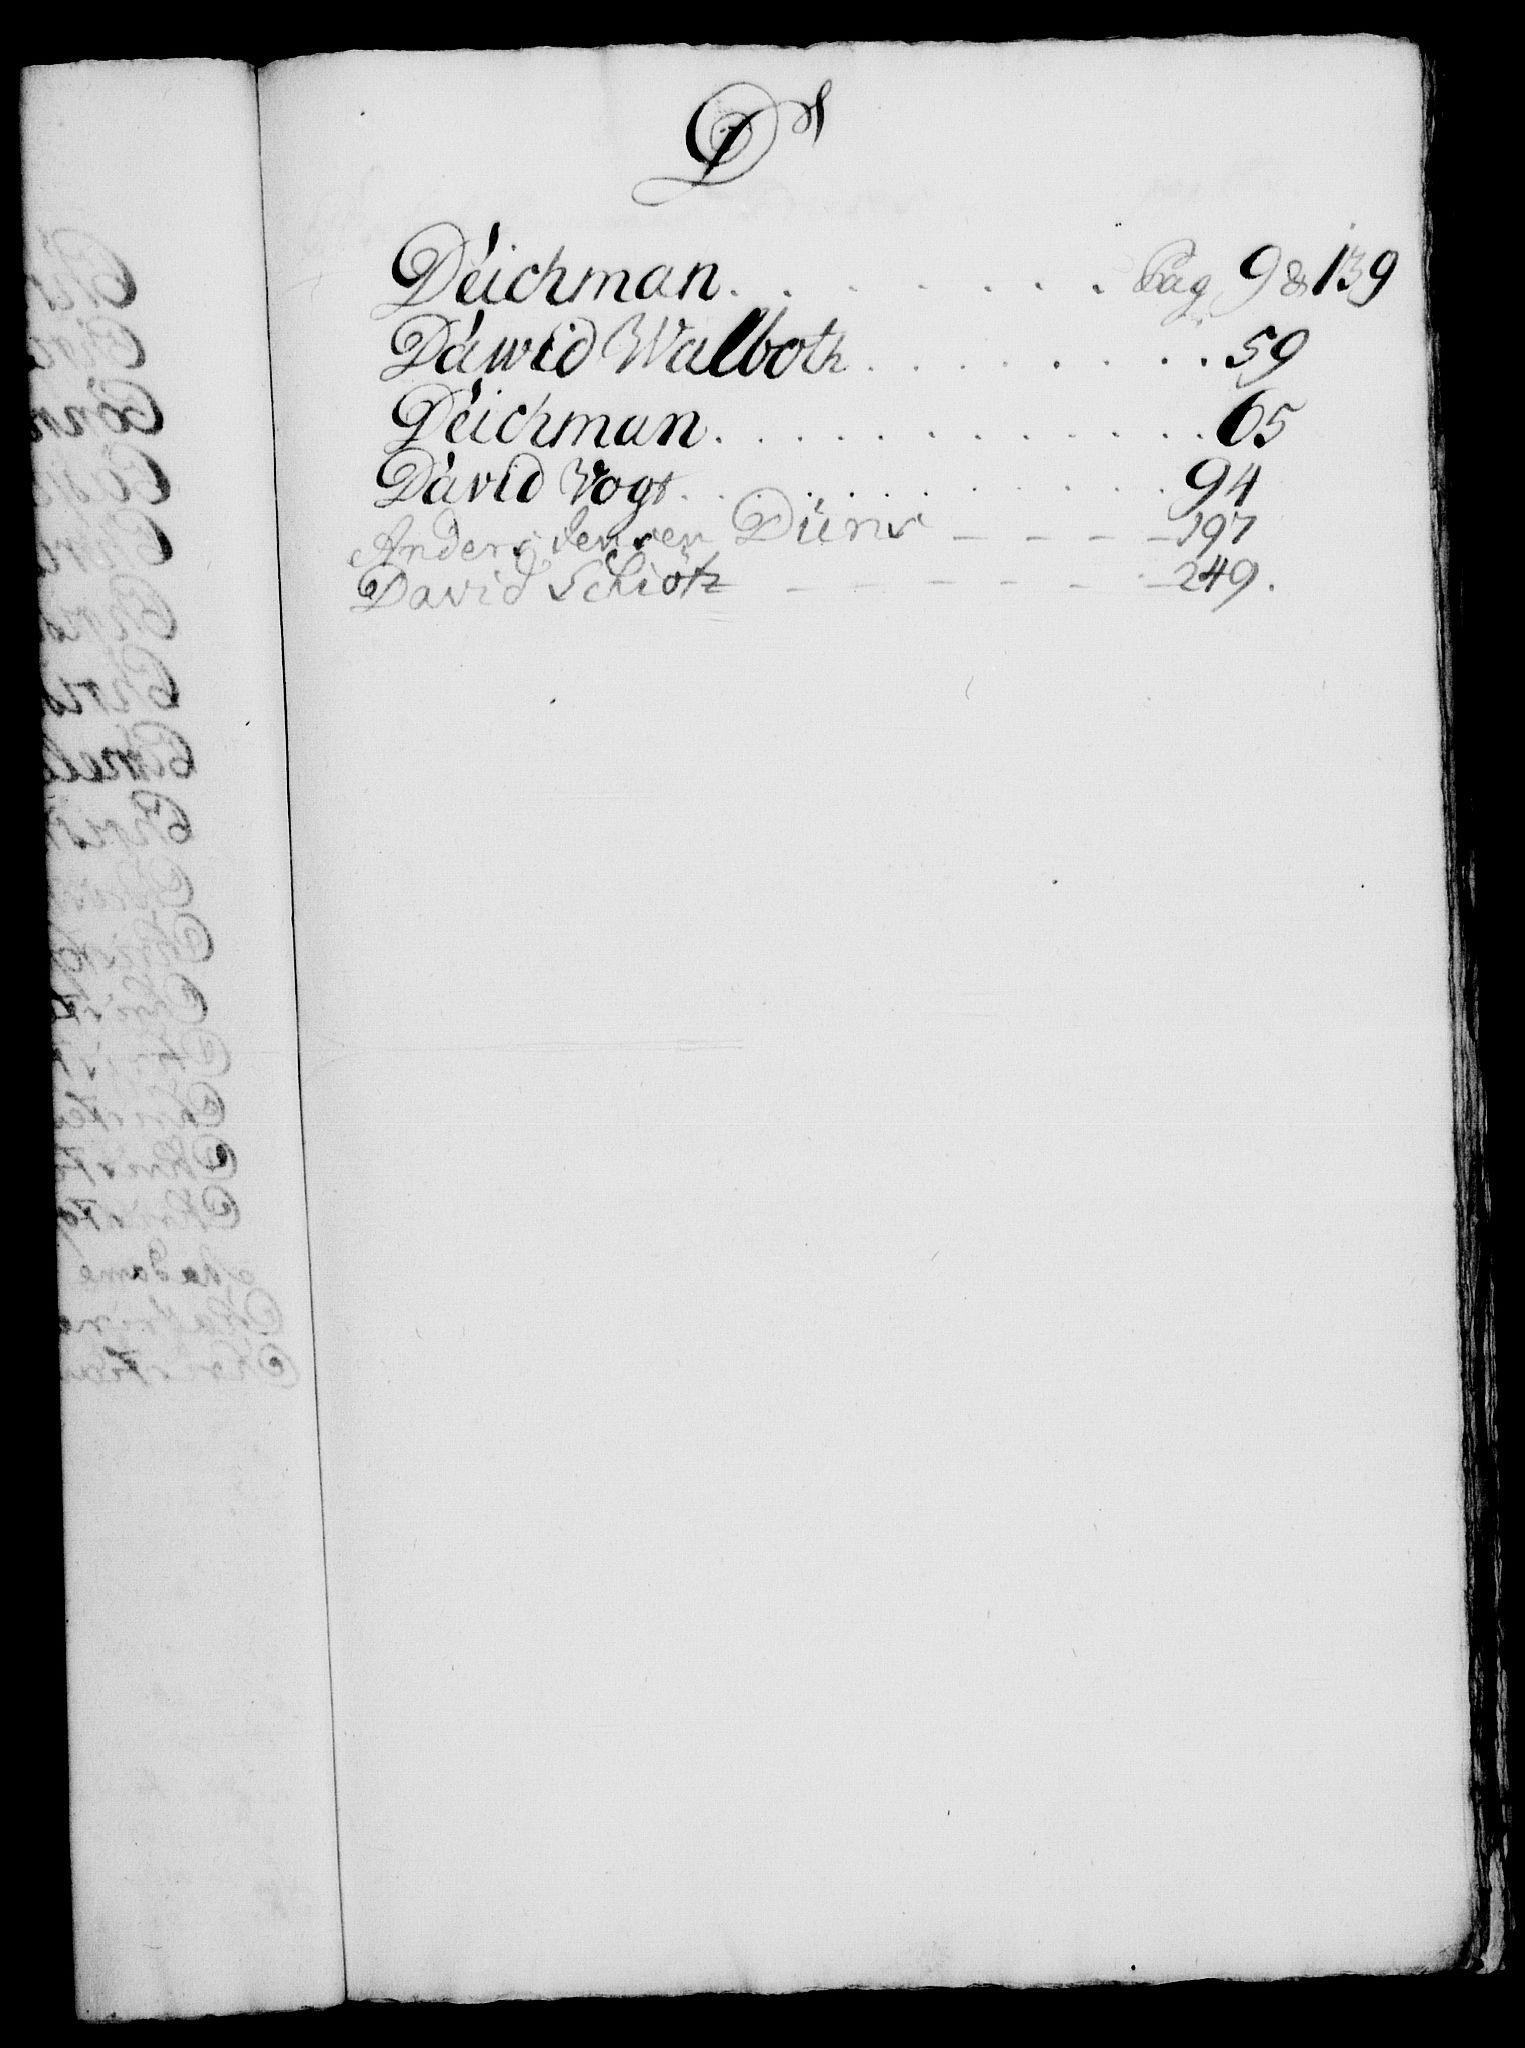 D
Deichman . . . . . . . Pag 9 & 139
Dawid Walboth . . . . . . . 59
Deichman . . . . . . . . . . 65
David Vogt . . . . . . . . . 94
Anders Jensen Diurs - - - - 197
David Schiøtz - - - - - - - 249.